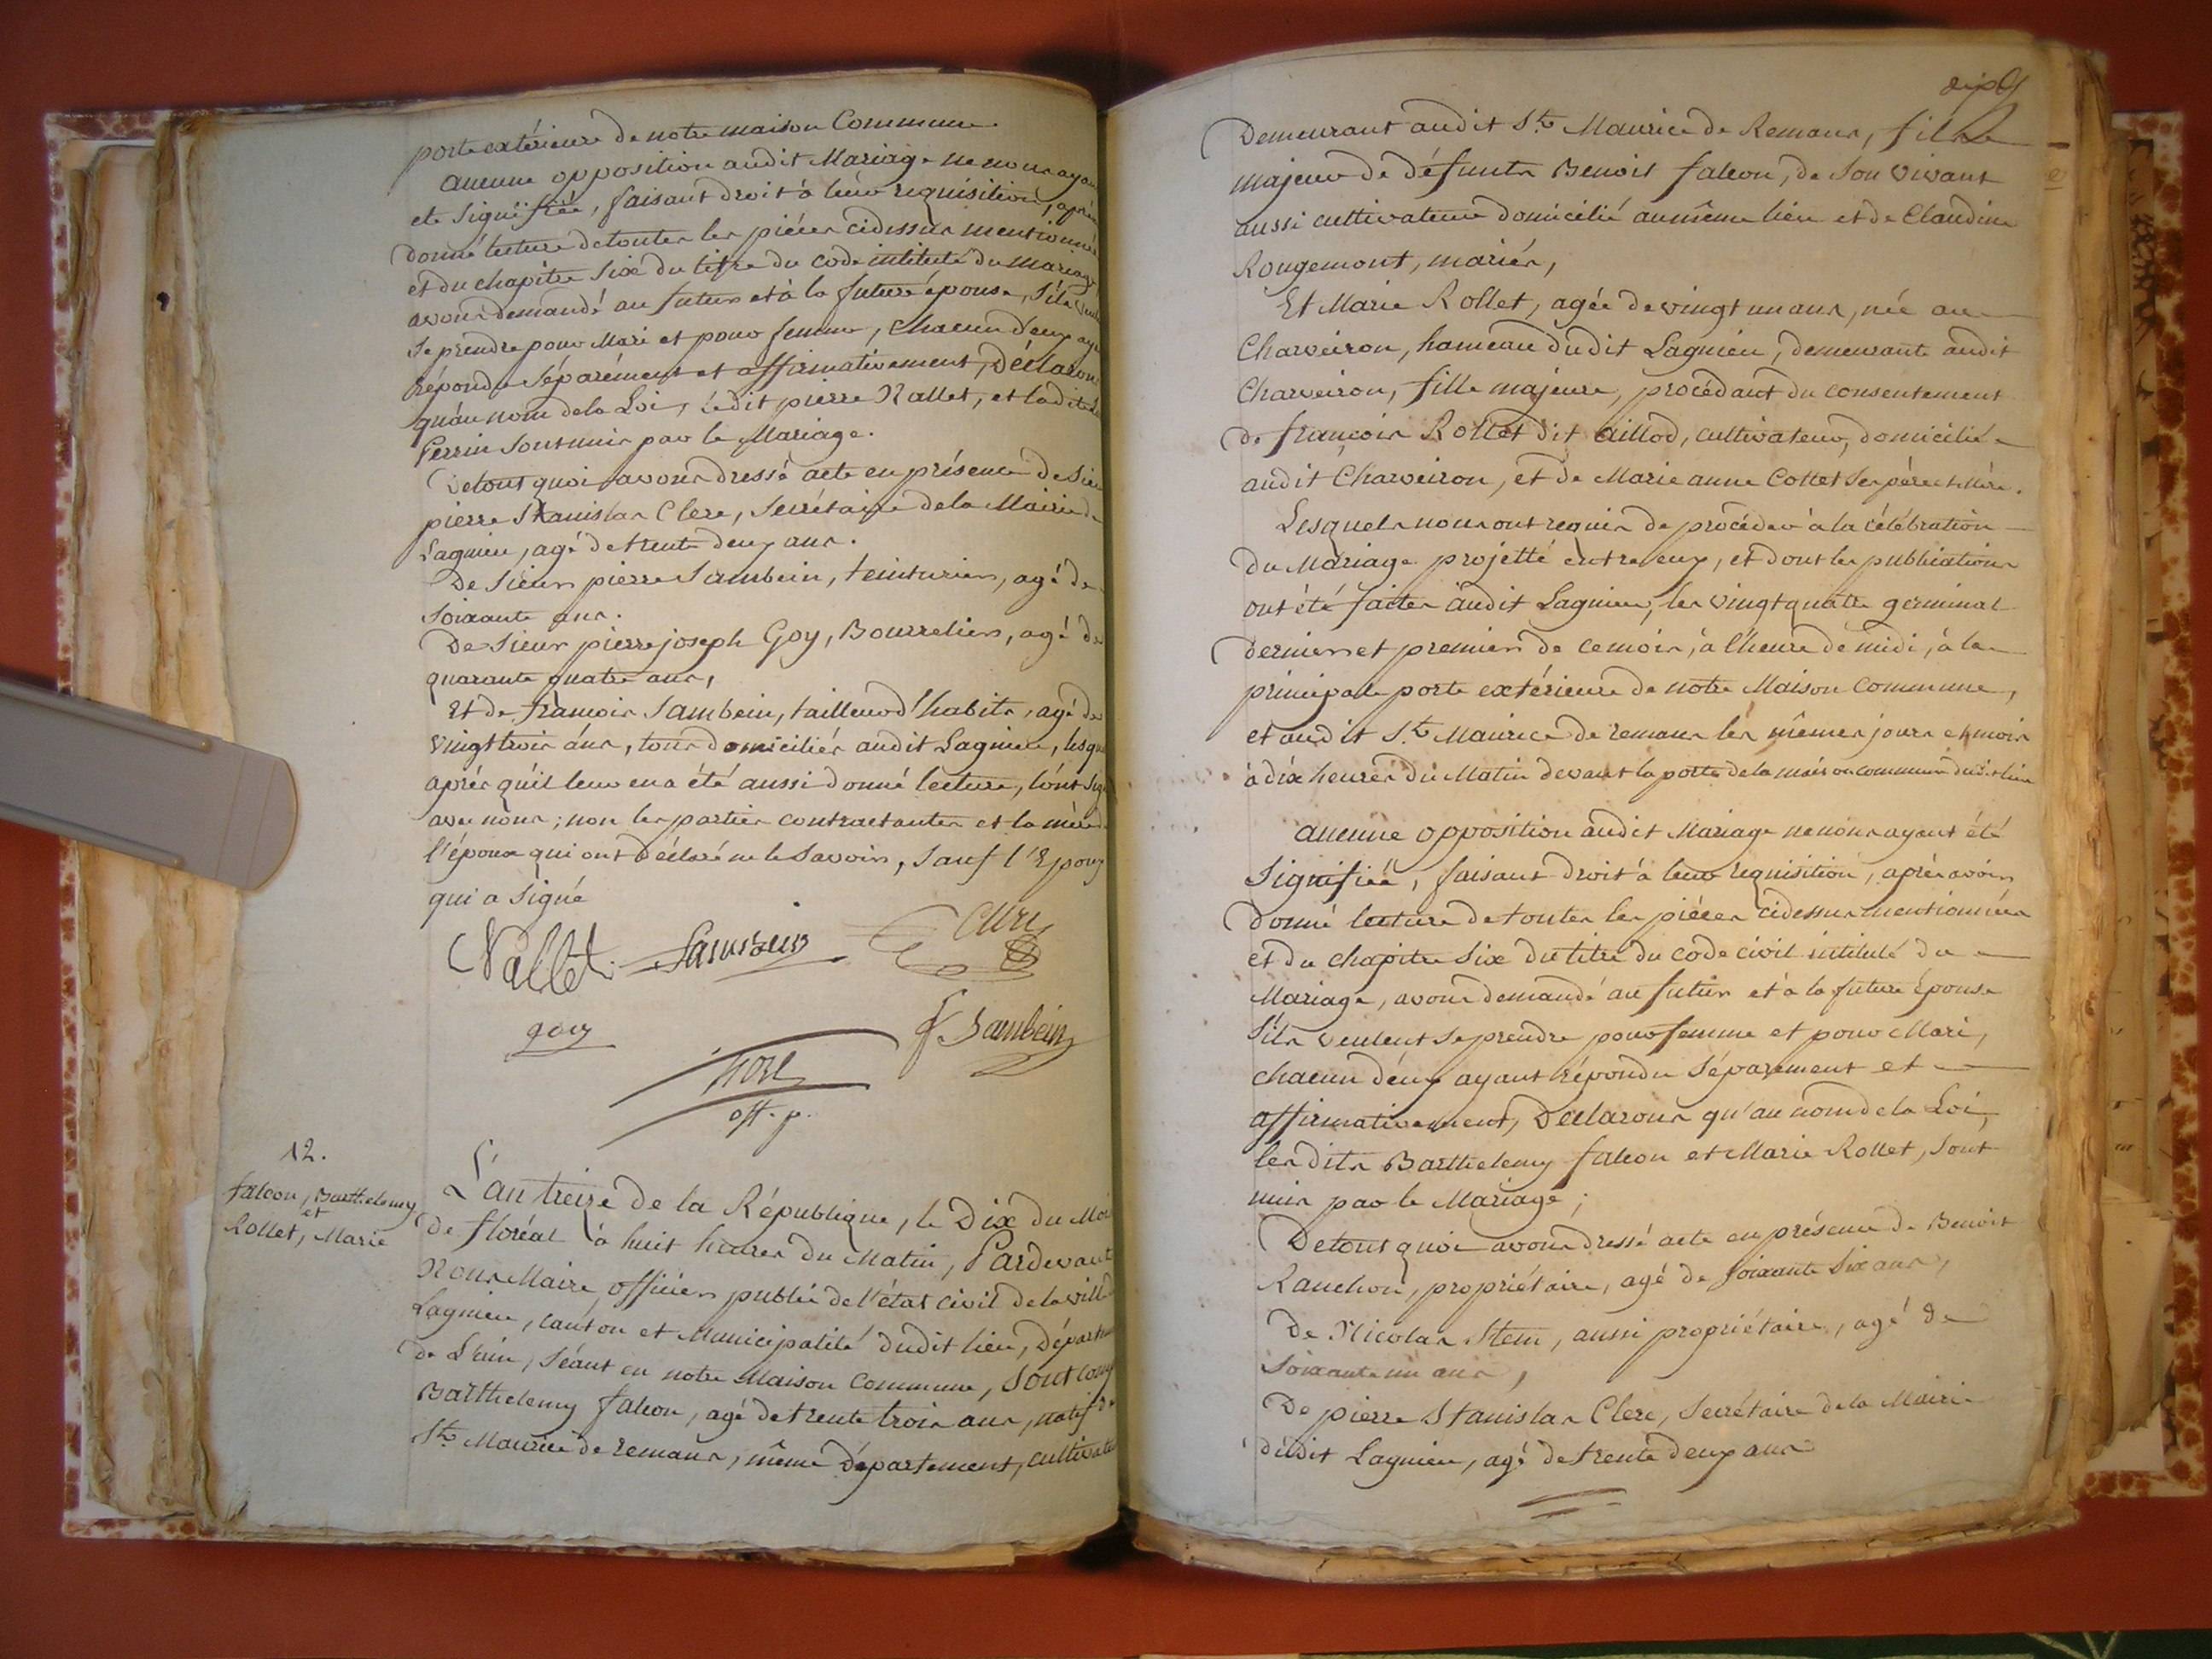 porte extérieure de notre maison Commune.
aucune opposition audit Mariage ne nous ayant
été Signifiée, faisant droit à leur requisition, après
donné lecture de toutes les pièces cidessus mentionnées
et du chapitre Six du titre du code intitulé du mariage
avons demandé au futur et à la future épouse, S'ils veulent
se prendre pour Mari et pour femme, chacun d'eux aya
répondu Séparément et affirmativement, Déclarons
qu'au nom de la Loi, Ledit pierre Nallet, et ladite
Perrin Sont unis par le Mariage.
De tout quoi avons dressé acte en présence de Sieur
pierre Stanislas Clerc, Secrétaire de la Mairie de
Lagnieu, agé de trente deux ans.
De Sieur pierre Sambein, teinturier, agé de
Soixante ans.
De Sieur pierre joseph Goy, Bourrelier, agé de
quarante quatre ans,
Et de françois Sambein, tailleur d'habits, agé de
vingt trois ans, tous domiciliés audit Lagnieu, lesque
après qu'il leur en a été aussi donné lecture, l'ont Sig
avec nous; non les parties contractantes et la mère d
l'époux qui ont déclaré ne le Savoir, Sauf l'Epoux
qui a Signé
Nallet Sambein Clerc
goy f Sambein
off. p.
12.
falcon, Barthelemy
et
Rollet, Marie
L'an treize de la République, le Dix du Moi
de floréal à huit heures du Matin, Pardevant
Nous Maire, officier public de l'état civil de la ville
Lagnieu, canton et Municipalité dudit lieu, Départem
de L'ain, Séant en notre Maison Commune, Sont comp
Barthelemy falcon, agé de trente trois ans, natif de
St. Maurice de remans, même Département, cultivateu
Demeurant audit St. Maurice de Remans, fils
majeur de défunts Benoit falcon, de Son vivant
aussi cultivateur domicilié au même lieu et de Claudine
Rougemont, mariés,
Et Marie Rollet, agée de vingt un ans, née au
Charveiron, hameau dudit Lagnieu, demeurante audit
Charveiron, fille majeure, procédant du consentement
de françois Rollet dit aillod, cultivateur, domicilié
audit Charveiron, et de Marie anne Cottet Ses père et Mère.
Lesquels nous ont requis de procéder à la célébration
du Mariage projetté entre eux, et dont les publications
ont été faites audit Lagnieu, les vingt quatre germinal
dernier et premier de ce mois, à l'heure de midi, à la
principale porte extérieure de notre Maison commune,
et audit St. Maurice de remans les mêmes jours et mois
à dix heures du Matin devant la porte de la maison commune dudit lieu
aucune opposition audit Mariage ne nous ayant été
Signifiée, faisant droit à leur requisition, après avoir
donné lecture de toutes les pièces cidessus mentionnées
et du chapitre Six du titre du code civil intitulé du
Mariage, avons demandé au futur et à la future Epouse
S'ils veulent se prendre pour femme et pour Mari,
chacun d'eux ayant répondu Séparément et
affirmativement, Déclarons qu'au nom de la Loi,
les dits Barthelemy falcon et Marie Rollet, Sont
unis par le Mariage;
De tout quoi avons dressé acte en présence de Benoit
Ranchon, propriétaire, agé de Soixante Six ans,
De Nicolas Stem, aussi propriétaire, agé de
Soixante un ans,
De pierre Stanislas Clerc, Secrétaire de la Mairie
dudit Lagnieu, agé de trente deux ans